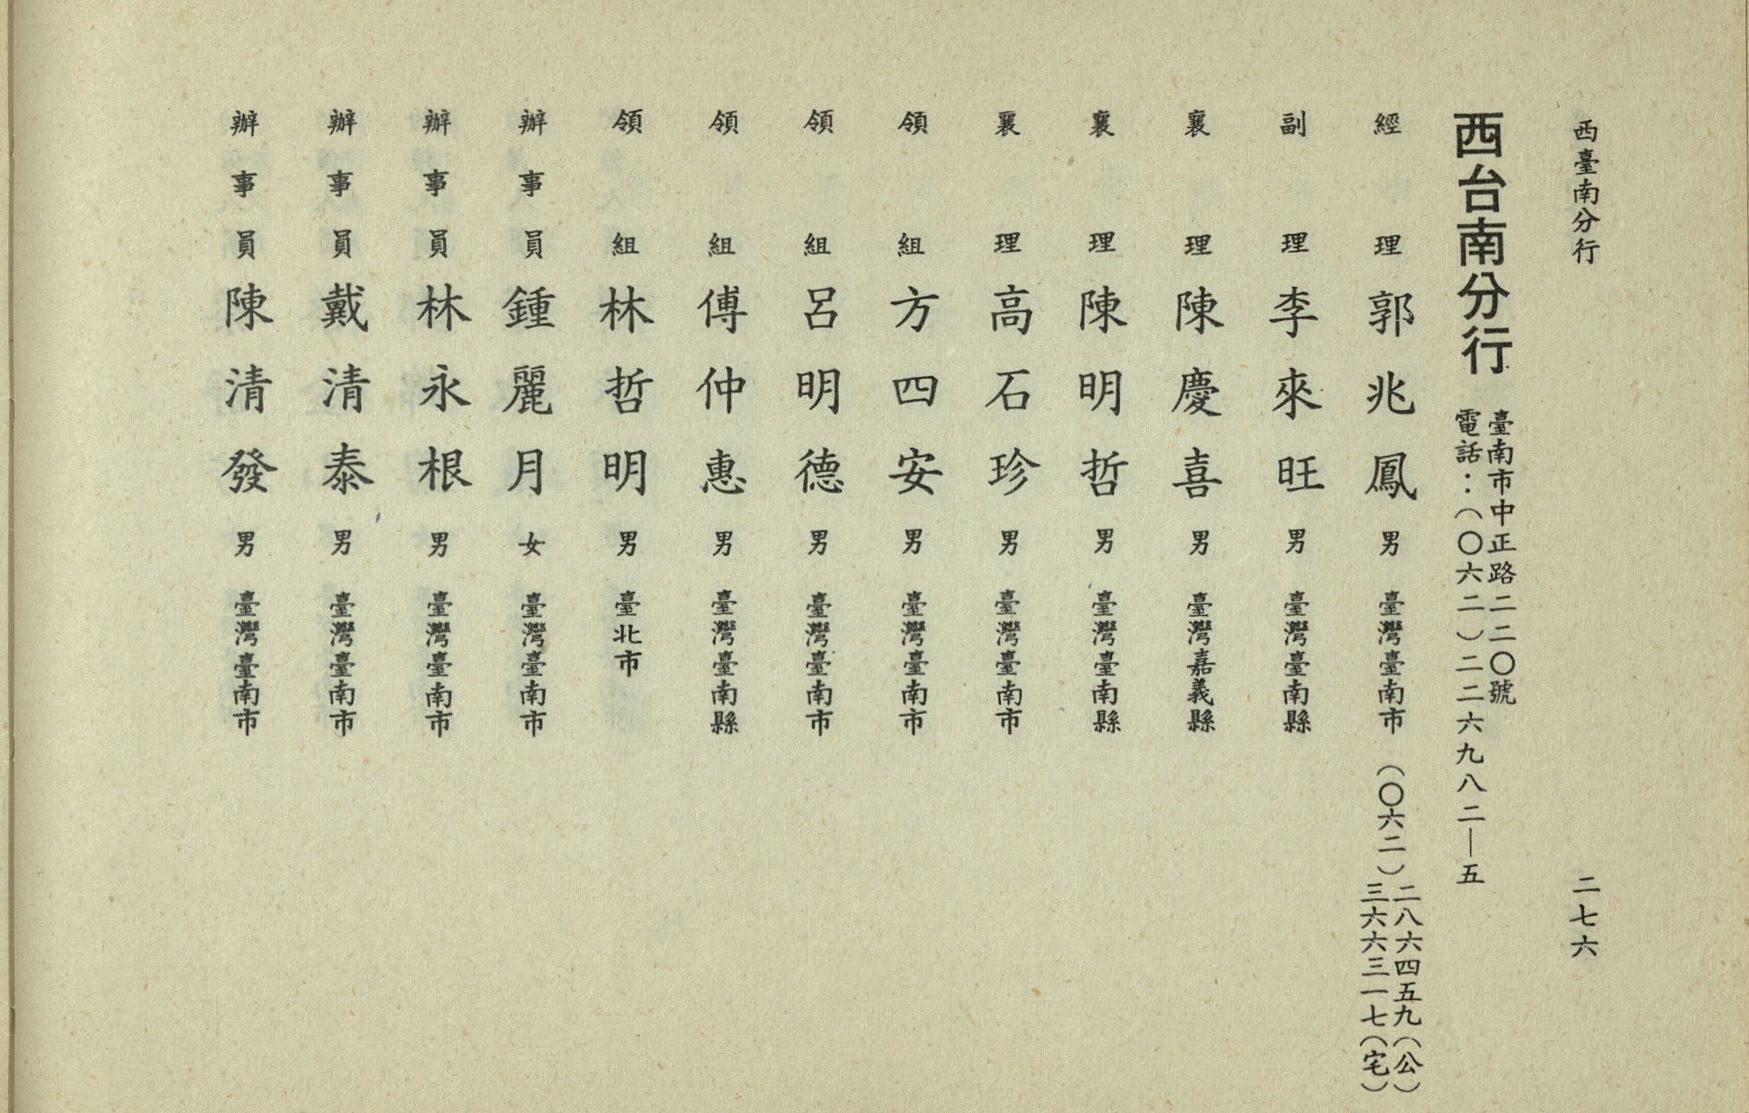 西臺南分行
二七六
西台南分行
臺南市中正路二二〇號
電話：（〇六二）二二六九八二—五
經理 郭兆鳳 男 臺灣臺南市 （〇六二）
二八六四五九（公）
三六六三一七（宅）
副理 李來旺 男 臺灣臺南縣
襄理 陳慶喜 男 臺灣嘉義縣
襄理 陳明哲 男 臺灣臺南縣
襄理 高石珍 男 臺灣臺南市
領組 方四安 男 臺灣臺南市
領組 呂明德 男 臺灣臺南市
領組 傅仲惠 男 臺灣臺南縣
領組 林哲明 男 臺北市
辦事員 鍾麗月 女 臺灣臺南市
辦事員 林永根 男 臺灣臺南市
辦事員 戴清泰 男 臺灣臺南市
辦事員 陳清發 男 臺灣臺南市